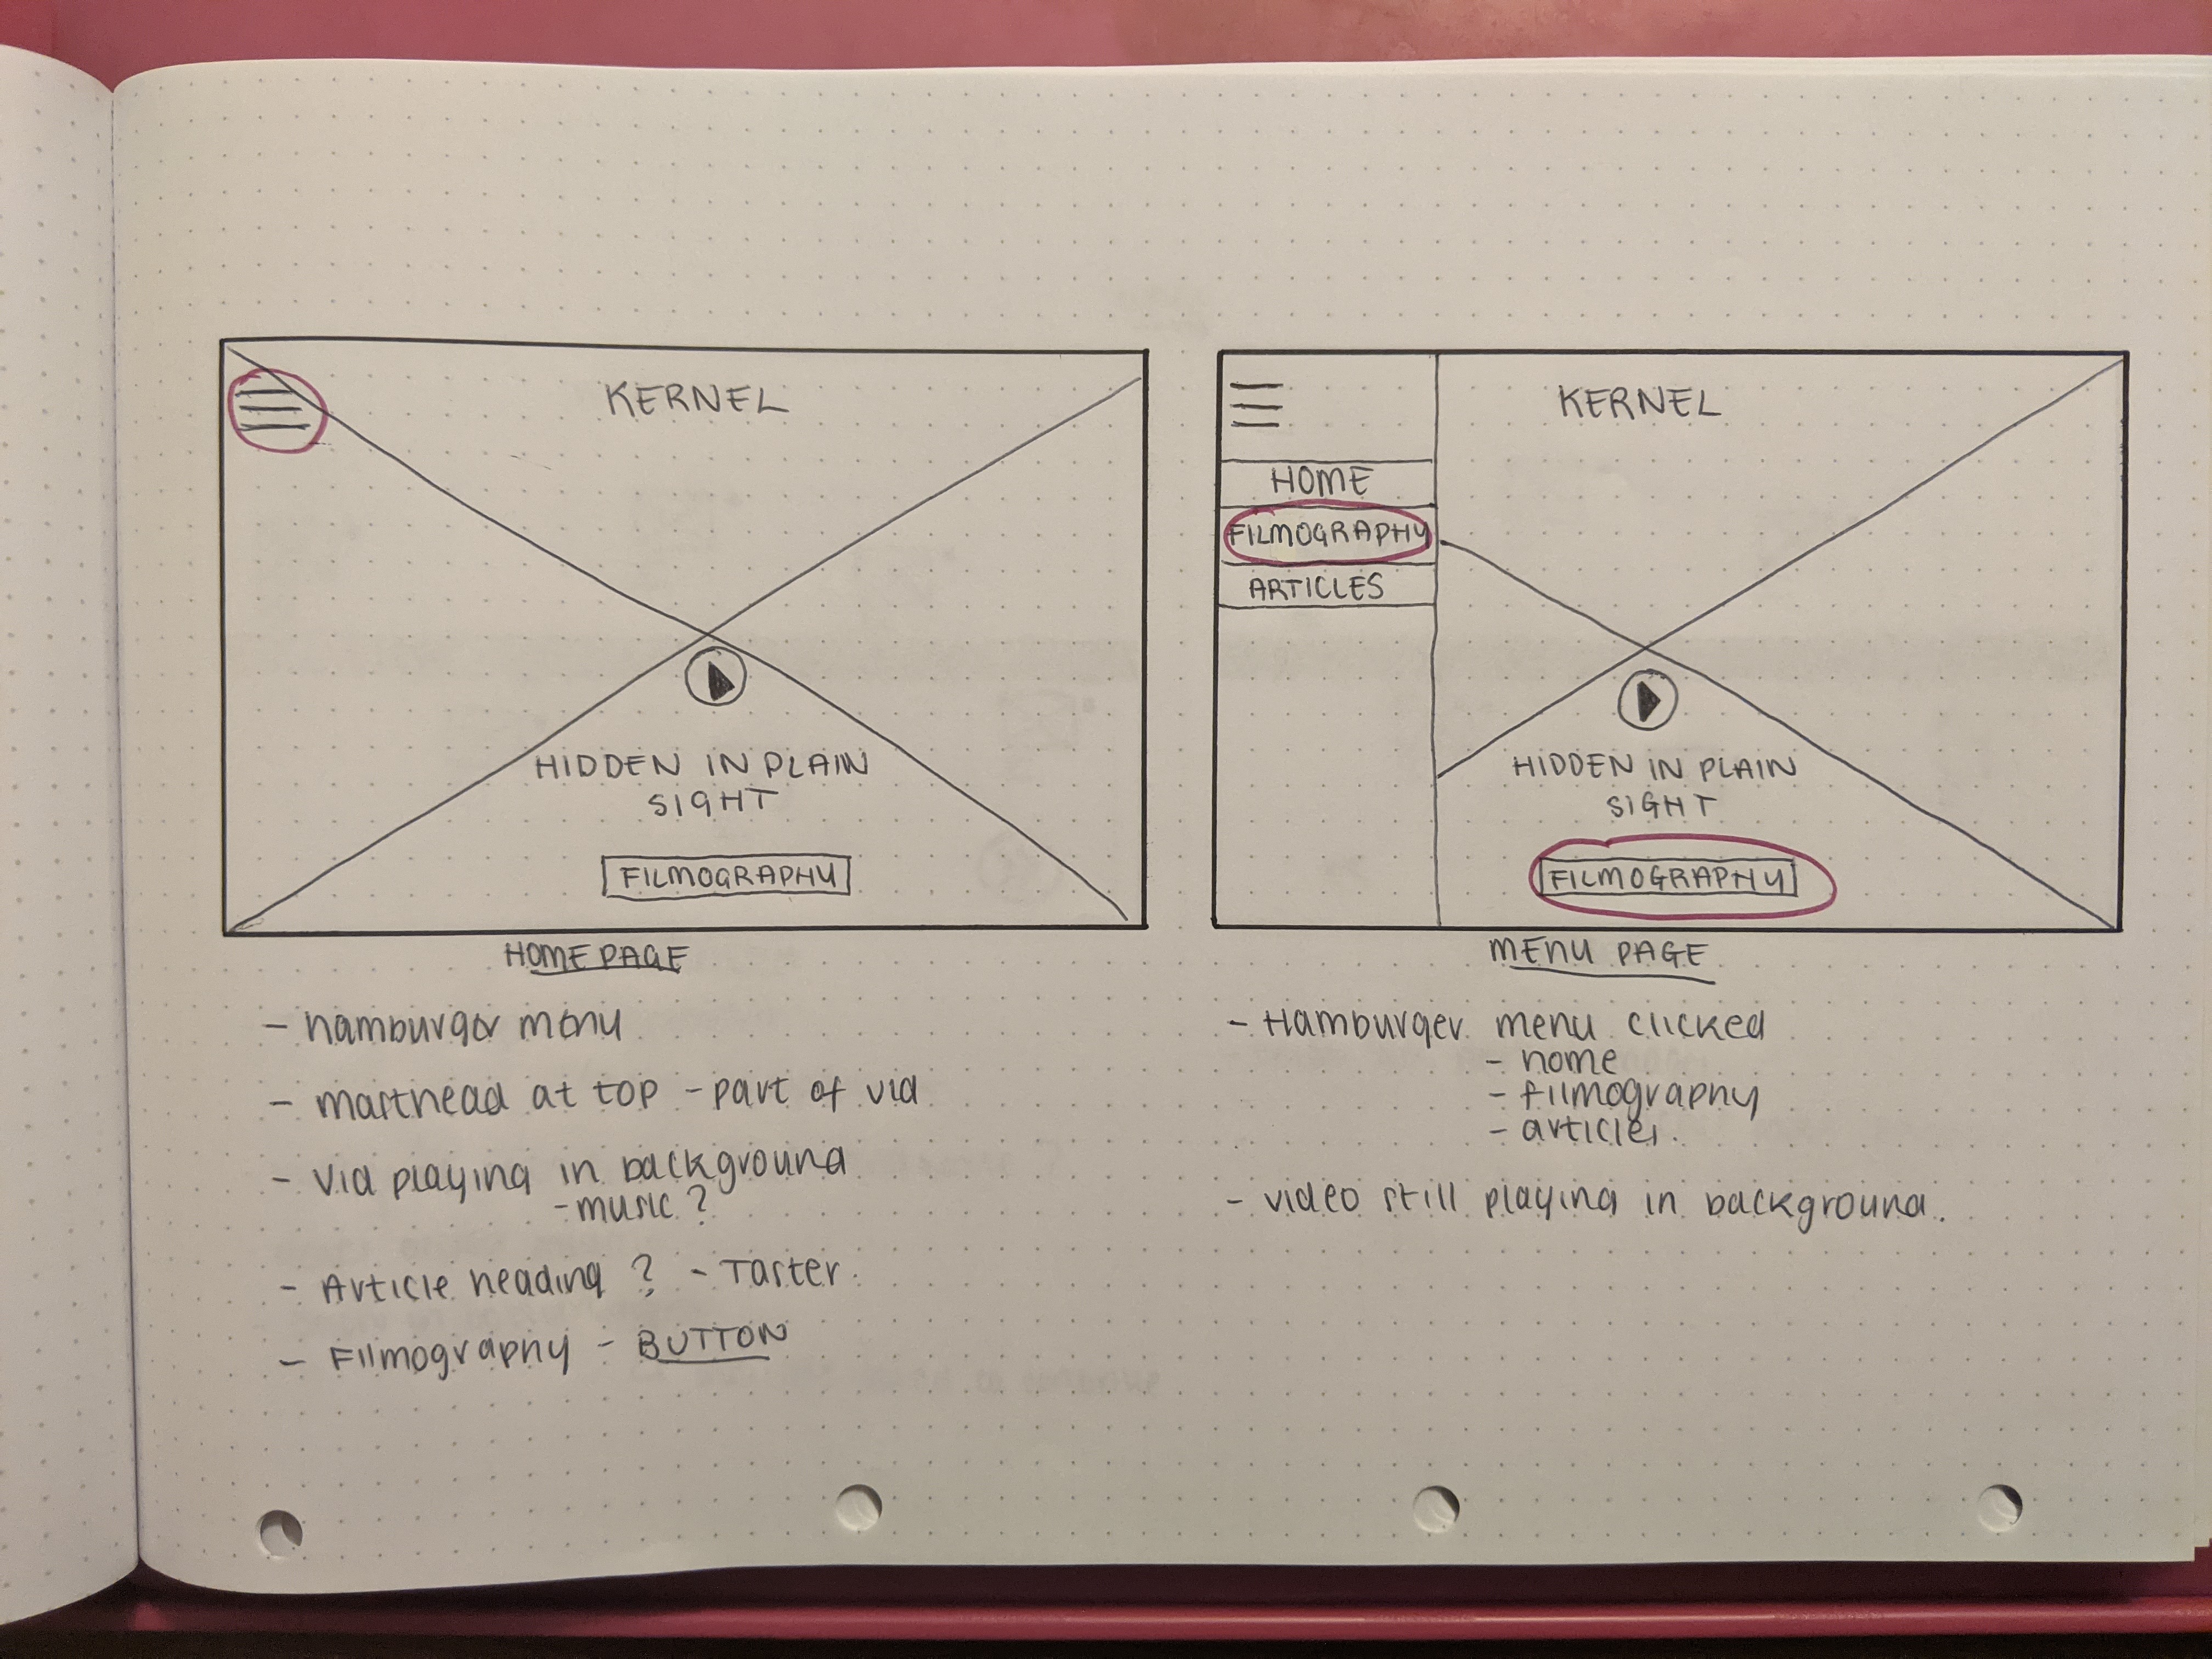 KERNEL
HIDDEN IN PLAIN
SIGHT
FILMOGRAPHY
HOMEPAGE
- hamburger menu
- masthead at top - part of vid
- Vid playing in background
- music?
- Article heading? - Taster.
- Filmography - BUTTON
KERNEL
HOME
FILMOGRAPHY
ARTICLES
HIDDEN IN PLAIN
SIGHT
FILMOGRAPHY
MENU PAGE
- Hamburger menu clicked
- home
- filmography
- articles.
- video still playing in background.